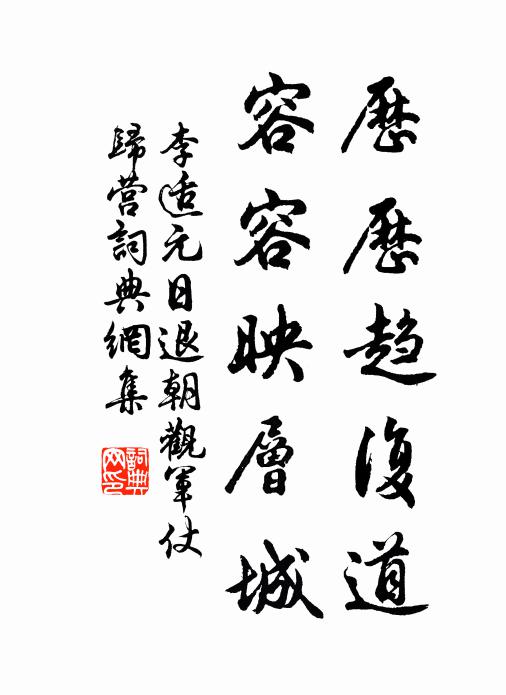 歷歷趨復道
容容映層城
李适元日退朝觀軍仗
歸營詞典網集
詞典
网印